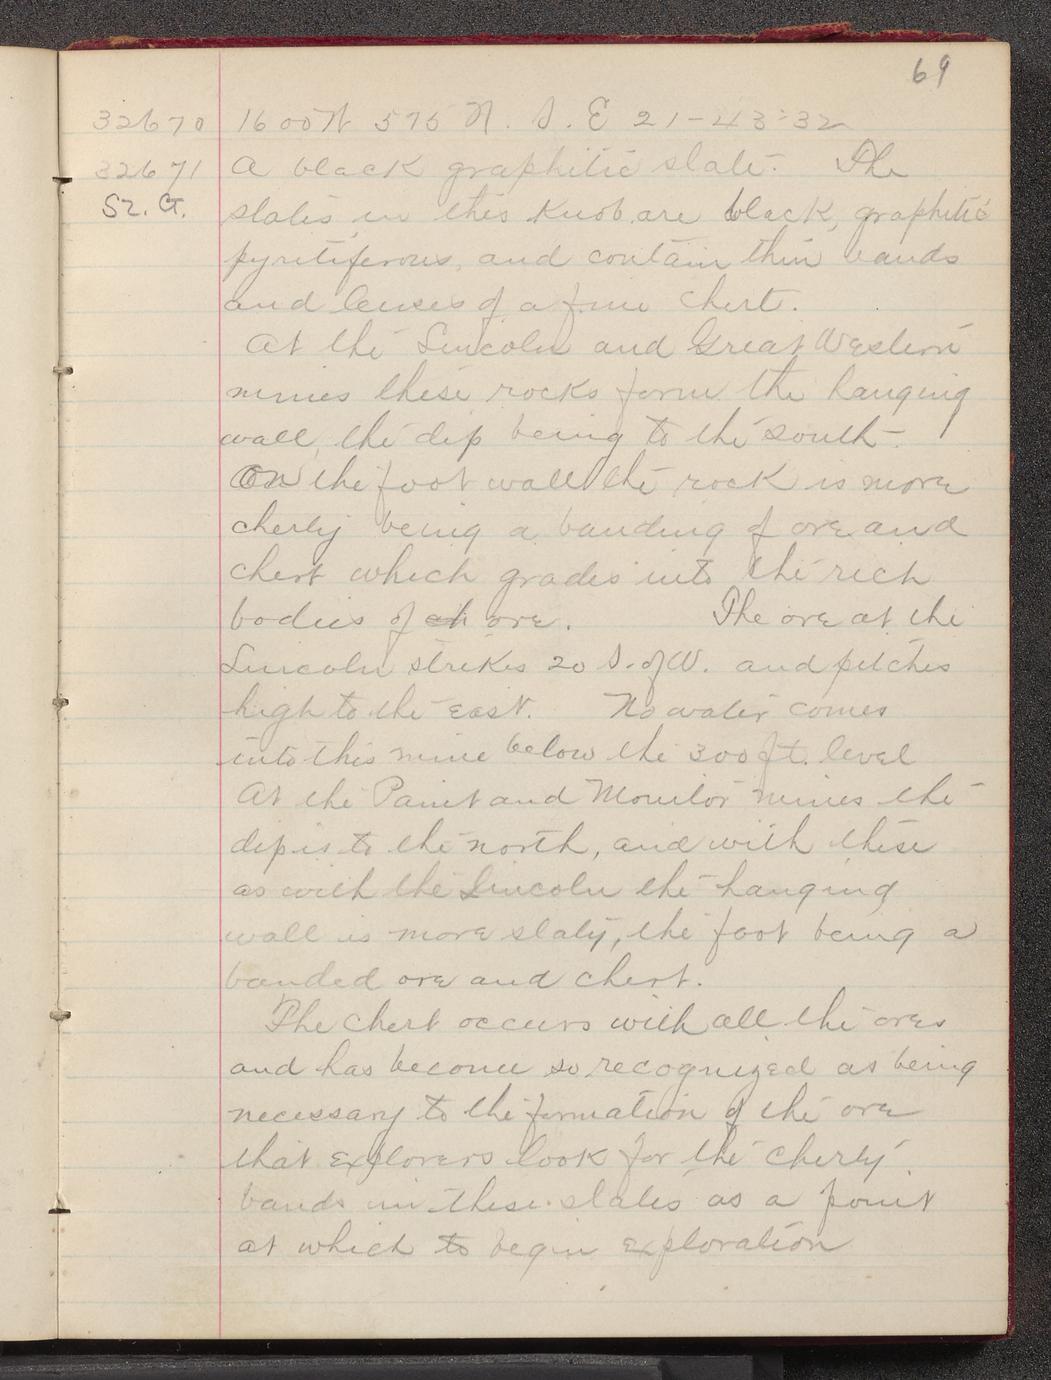 69
32670 1600W 575 N. S. E 21-43-32
32671 A black graphitic slate. The
Sz. G. slates in this Knob are black, graphitic
pyritiferous, and contain thin bands
and lenses of a fine chert.
At the Lincoln and Great Western
mines these rocks form the hanging
wall, the dip being to the south-.
On the foot wall the rock is more
cherty being a banding of ore and
chert which grades into the rich
bodies of ch ore. The ore at the
Lincoln strikes 20 S. of W. and pitches
high to the east. No water comes
into this mine below the 300 ft. level
At the Paint and Monitor mines the
dip is to the north, and with these
as with the Lincoln the hanging
wall is more slaty, the foot being a
banded ore and chert.
The chert occurs with all the ores
and has become so recognized as being
necessary to the formation of the ore
that explorers look for the cherty
bands in these slates as a point
at which to begin exploration